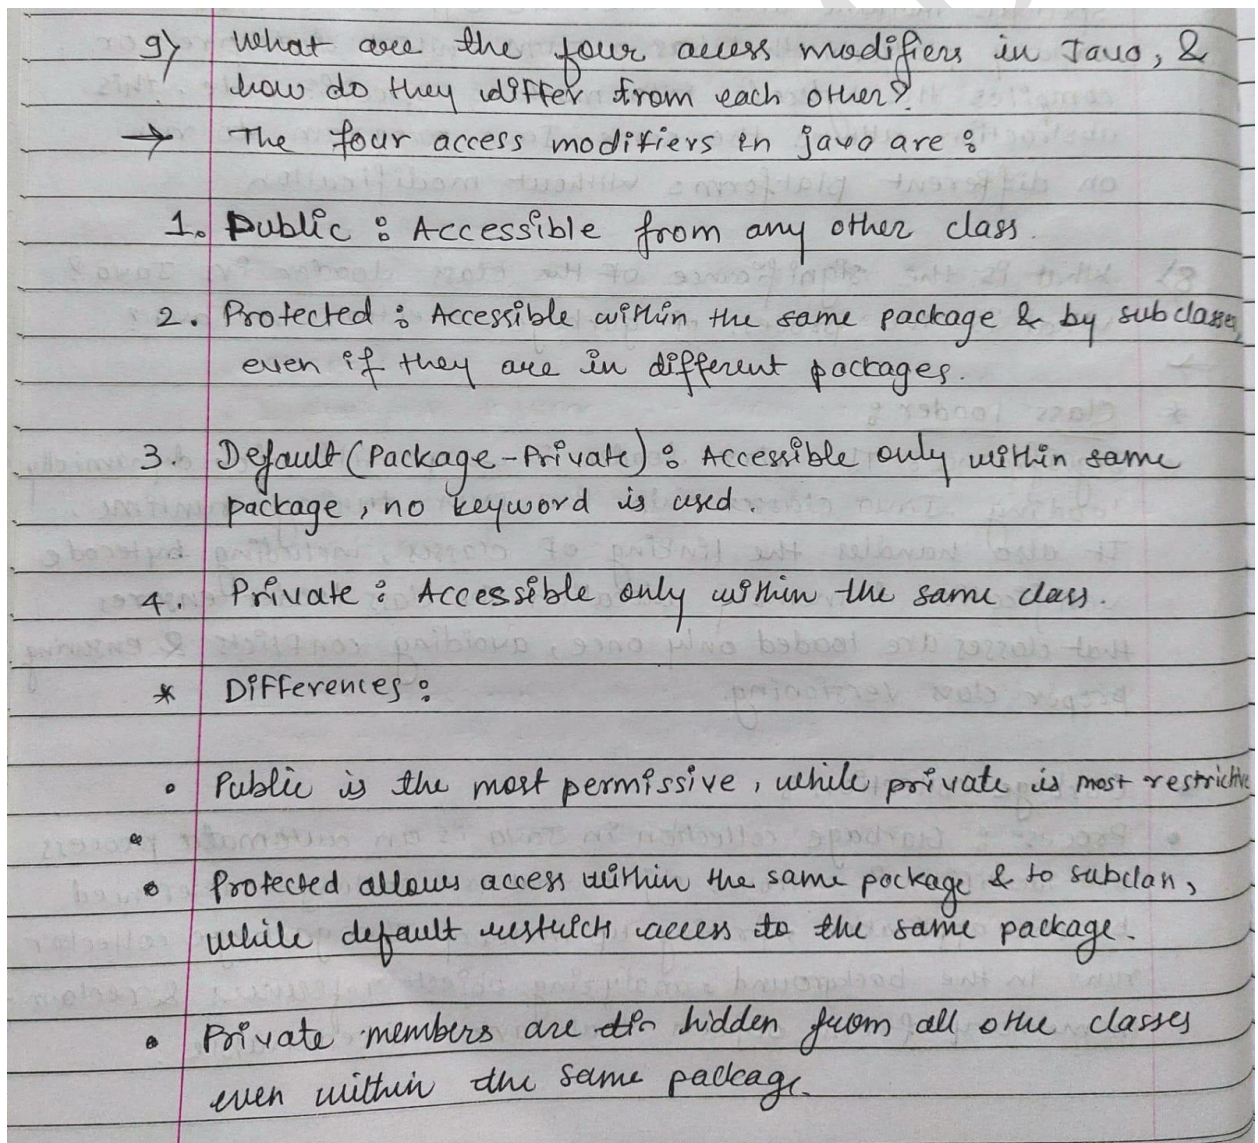 9) What are the four access modifiers in Java, &
how do they differ from each other?
→ The four access modifiers in java are :
1. Public : Accessible from any other class.
2. Protected : Accessible within the same package & by subclasses,
even if they are in different packages.
3. Default (Package-Private) : Accessible only within same
package, no keyword is used.
4. Private : Accessible only within the same class.
* Differences :
• Public is the most permissive, while private is most restrictive
• Protected allows access within the same package & to subclass,
while default restricts access to the same package.
• Private members are hidden from all othe classes
even within the same package.